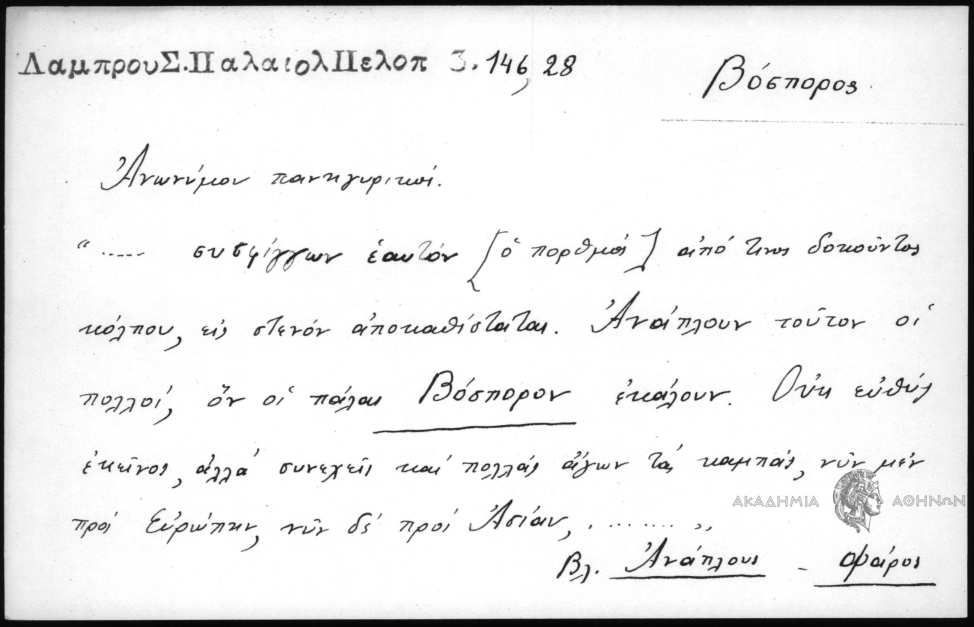 ΛαμπρουΣ.ΠαλαιολΠελοπ 3. 146,28
Βόσπορος
Ἀνωνύμου πανηγυρικοί.
"..... συσφίγγων ἑαυτόν [ὁ πορθμός] ἀπό τινος δοκοῦντος
κόλπου, εἰς στενόν ἀποκαθίσταται. Ἀνάπλουν τοῦτον οἱ
πολλοί, ὅν οἱ πάλαι Βόσπορον ἐκάλουν. Οὐκ εὐθύς
ἐκεῖνος, ἀλλά συνεχεῖς καί πολλάς ἄγων τάς καμπάς, νῦν μέν
πρός Εὐρώπην, νῦν δέ πρός Ἀσίαν, ........ "
ΑΚΑΔΗΜΙΑ ΑΘΗΝΩΝ
Βλ. Ἀνάπλους - Φάρος